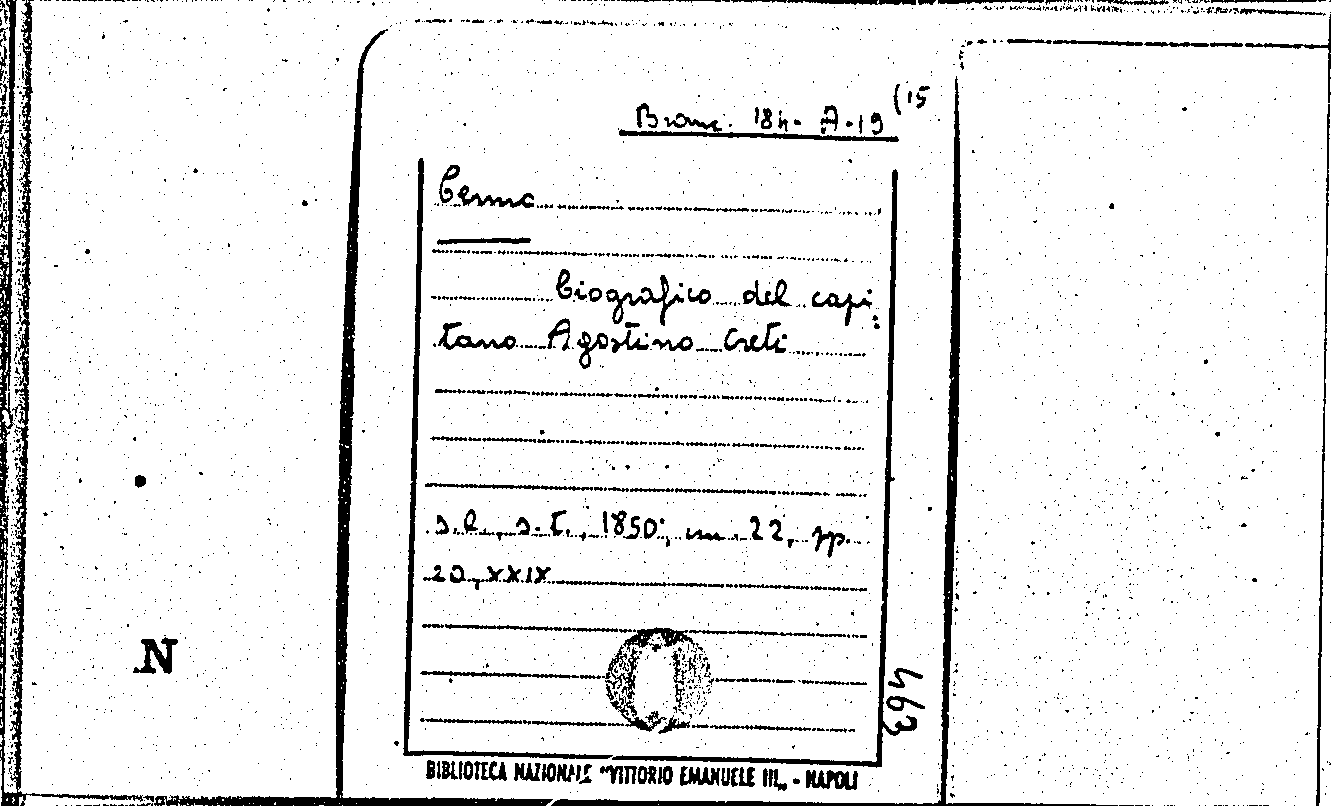 Branc. 184- A-19 (15
Cenno
biografico del capi:
tano Agostino Creti
s.l., s.t., 1850; cm. 22, pp.
20, XXIX
463
N
BIBLIOTECA NAZIONALE "VITTORIO EMANUELE III„ - NAPOLI